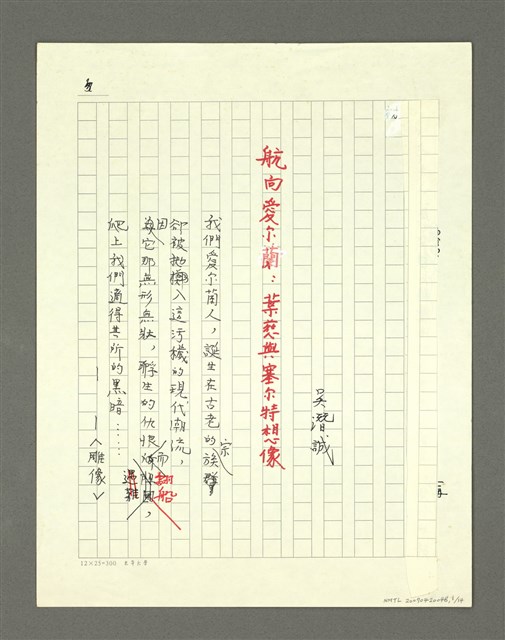 航向愛尔蘭：葉慈與塞尔特想像
吳潛誠
我們愛尔蘭人，誕生在古老的族宗
卻被拋擲入這污穢的現代潮流，
因它那無形無狀，孵生的仇恨而翻船，
爬上我們適得其所的黑暗……
——〈雕像〉
遇難
12×25=300
NMTL 20090420048, 1/14